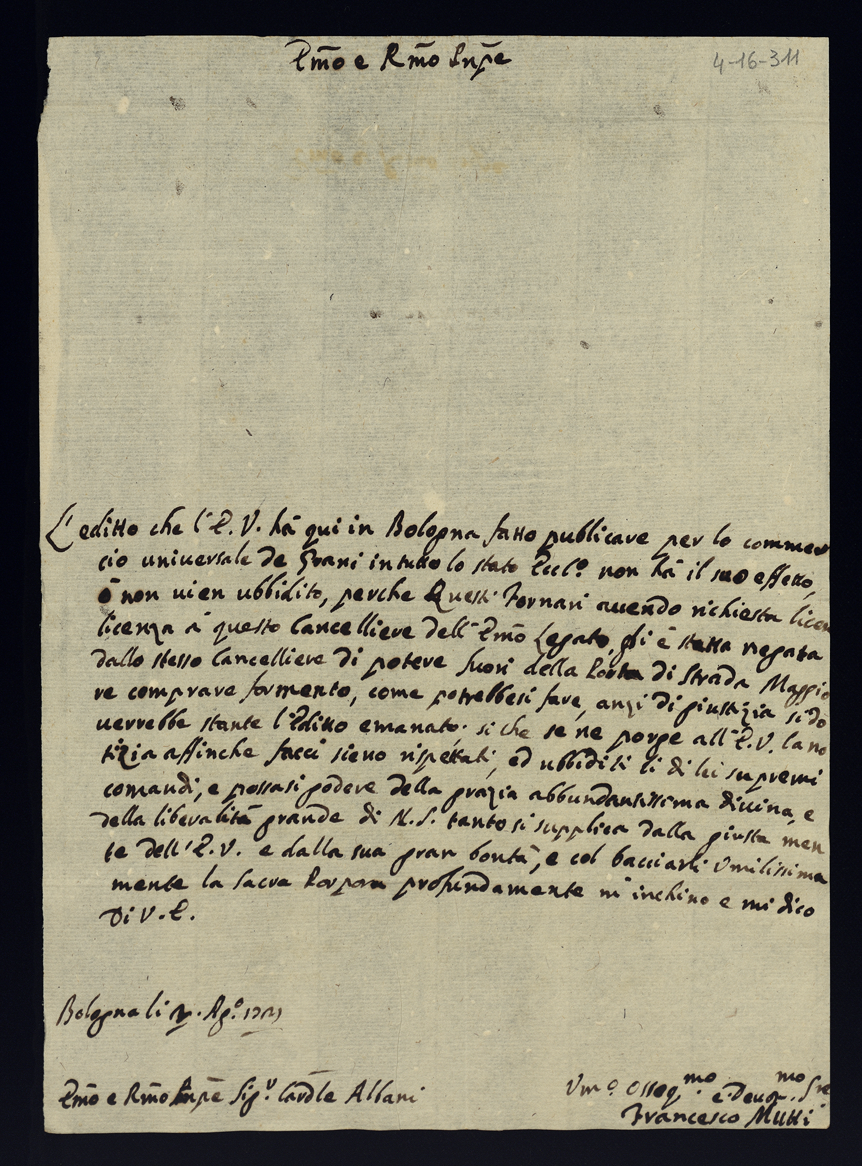 Emõ e Rmõ Pnpẽ
4-16-311
L'editto che l'E. V. há qui in Bologna fatto publicare per lo commer
cio universale de Grani in tutto lo stato Eccl.º non há il suo effetto,
ó non uien ubbidito, perche Questi Fornari auendo richiesta licen
licenza á questo Cancelliere dell'Emõ Legato, gli é stata negata
dallo stesso Cancelliere di potere fuori della Porta di Strada Maggio
re comprare formento, come potrebbesi fare, anzi di giustizia si do
uerrebbe stante l'Editto emanato. si che se ne porge all'E. V. la no
tizia affinche facci sieno rispettati, ed ubbiditi li di lei supremi
comandi, e possasi godere della grazia abbundantissima diuina, e
della liberalitá grande di N. S. tanto si supplica dalla giusta men
te dell'E. V. e dalla sua gran bontá, e col bacciarli Vmilissima
mente la Sacra Porpora profundamente m'inchino e mi dico
Di V. E.
Bologna li Ag.º
Emõ e Rmõ Pnpẽ Sig.r Cardle Albani
Vm.º Osseq.mo e Deuo.mo Sre
Francesco Mutti